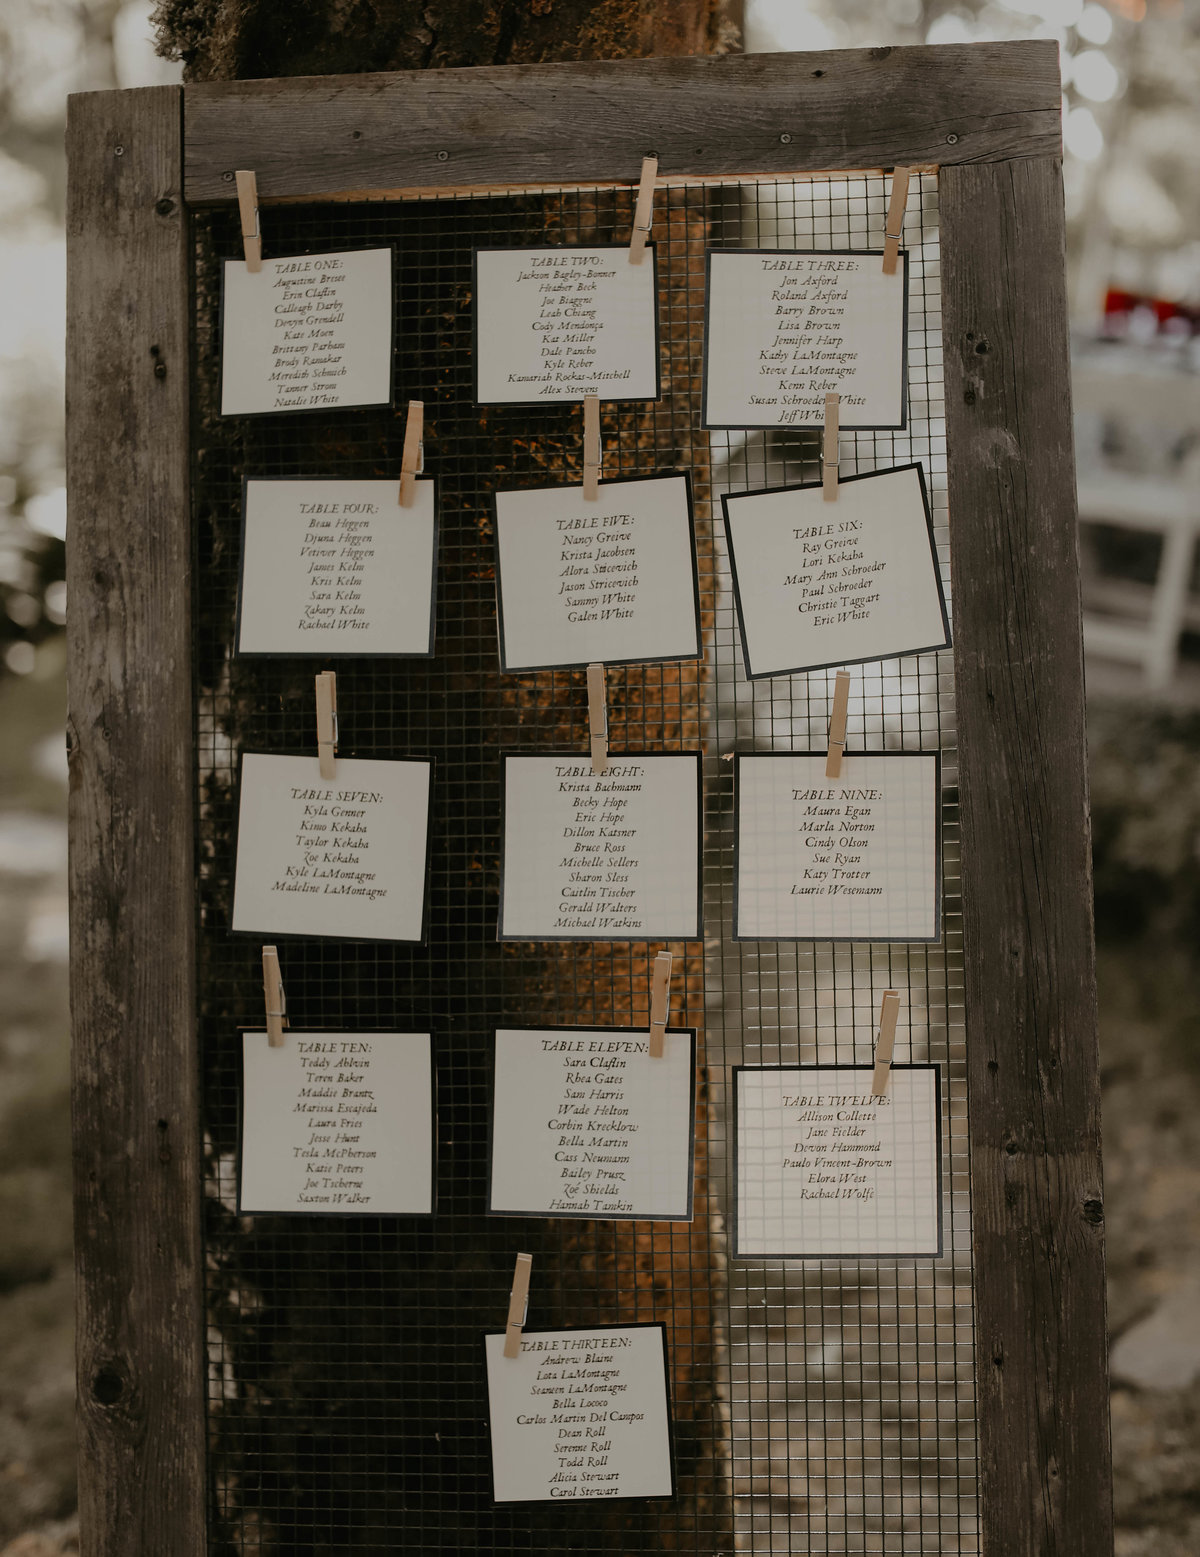 TABLE ONE:
Augustine Bresee
Erin Claflin
Calleagh Darby
Devyn Grendell
Kate Moen
Brittany Parham
Brody Ramakar
Meredith Schmich
Tanner Strom
Natalie White
TABLE TWO:
Jackson Bagley-Bonner
Heather Beck
Joe Biaggne
Leah Chiang
Cody Mendonça
Kat Miller
Dale Pancho
Kyle Reber
Kamariah Rockas-Mitchell
Alex Stevens
TABLE THREE:
Jon Axford
Roland Axford
Barry Brown
Lisa Brown
Jennifer Harp
Kathy LaMontagne
Steve LaMontagne
Kenn Reber
Susan Schroeder White
Jeff
TABLE FOUR:
Beau Heggen
Djuna Heggen
Vetiver Heggen
James Kelm
Kris Kelm
Sara Kelm
Zakary Kelm
Rachael White
TABLE FIVE:
Nancy Greive
Krista Jacobsen
Alora Sticevich
Jason Stricevich
Sammy White
Galen White
TABLE SIX:
Ray Greive
Lori Kekaha
Mary Ann Schroeder
Paul Schroeder
Christie Taggart
Eric White
TABLE SEVEN:
Kyla Genner
Kimo Kekaha
Taylor Kekaha
Zoe Kekaha
Kyle LaMontagne
Madeline LaMontagne
TABLE EIGHT:
Krista Bachmann
Becky Hope
Eric Hope
Dillon Katsner
Bruce Ross
Michelle Sellers
Sharon Sless
Caitlin Tischer
Gerald Walters
Michael Watkins
TABLE NINE:
Maura Egan
Marla Norton
Cindy Olson
Sue Ryan
Katy Trotter
Laurie Wesemann
TABLE TEN:
Teddy Ahlvin
Teren Baker
Maddie Brantz
Marissa Escajeda
Laura Fries
Jesse Hunt
Tesla McPherson
Katie Peters
Joe Tscherne
Saxton Walker
TABLE ELEVEN:
Sara Claflin
Rhea Gates
Sam Harris
Wade Helton
Corbin Krecklow
Bella Martin
Cass Neumann
Bailey Prusz
Zoë Shields
Hannah Tamkin
TABLE TWELVE:
Allison Collette
Jane Fielder
Devon Hammond
Paulo Vincent-Brown
Elora West
Rachael Wolfe
TABLE THIRTEEN:
Andrew Blaine
Lota LaMontagne
Seaneen LaMontagne
Bella Lococo
Carlos Martin Del Campos
Dean Roll
Serenne Roll
Todd Roll
Alicia Stewart
Carol Stewart